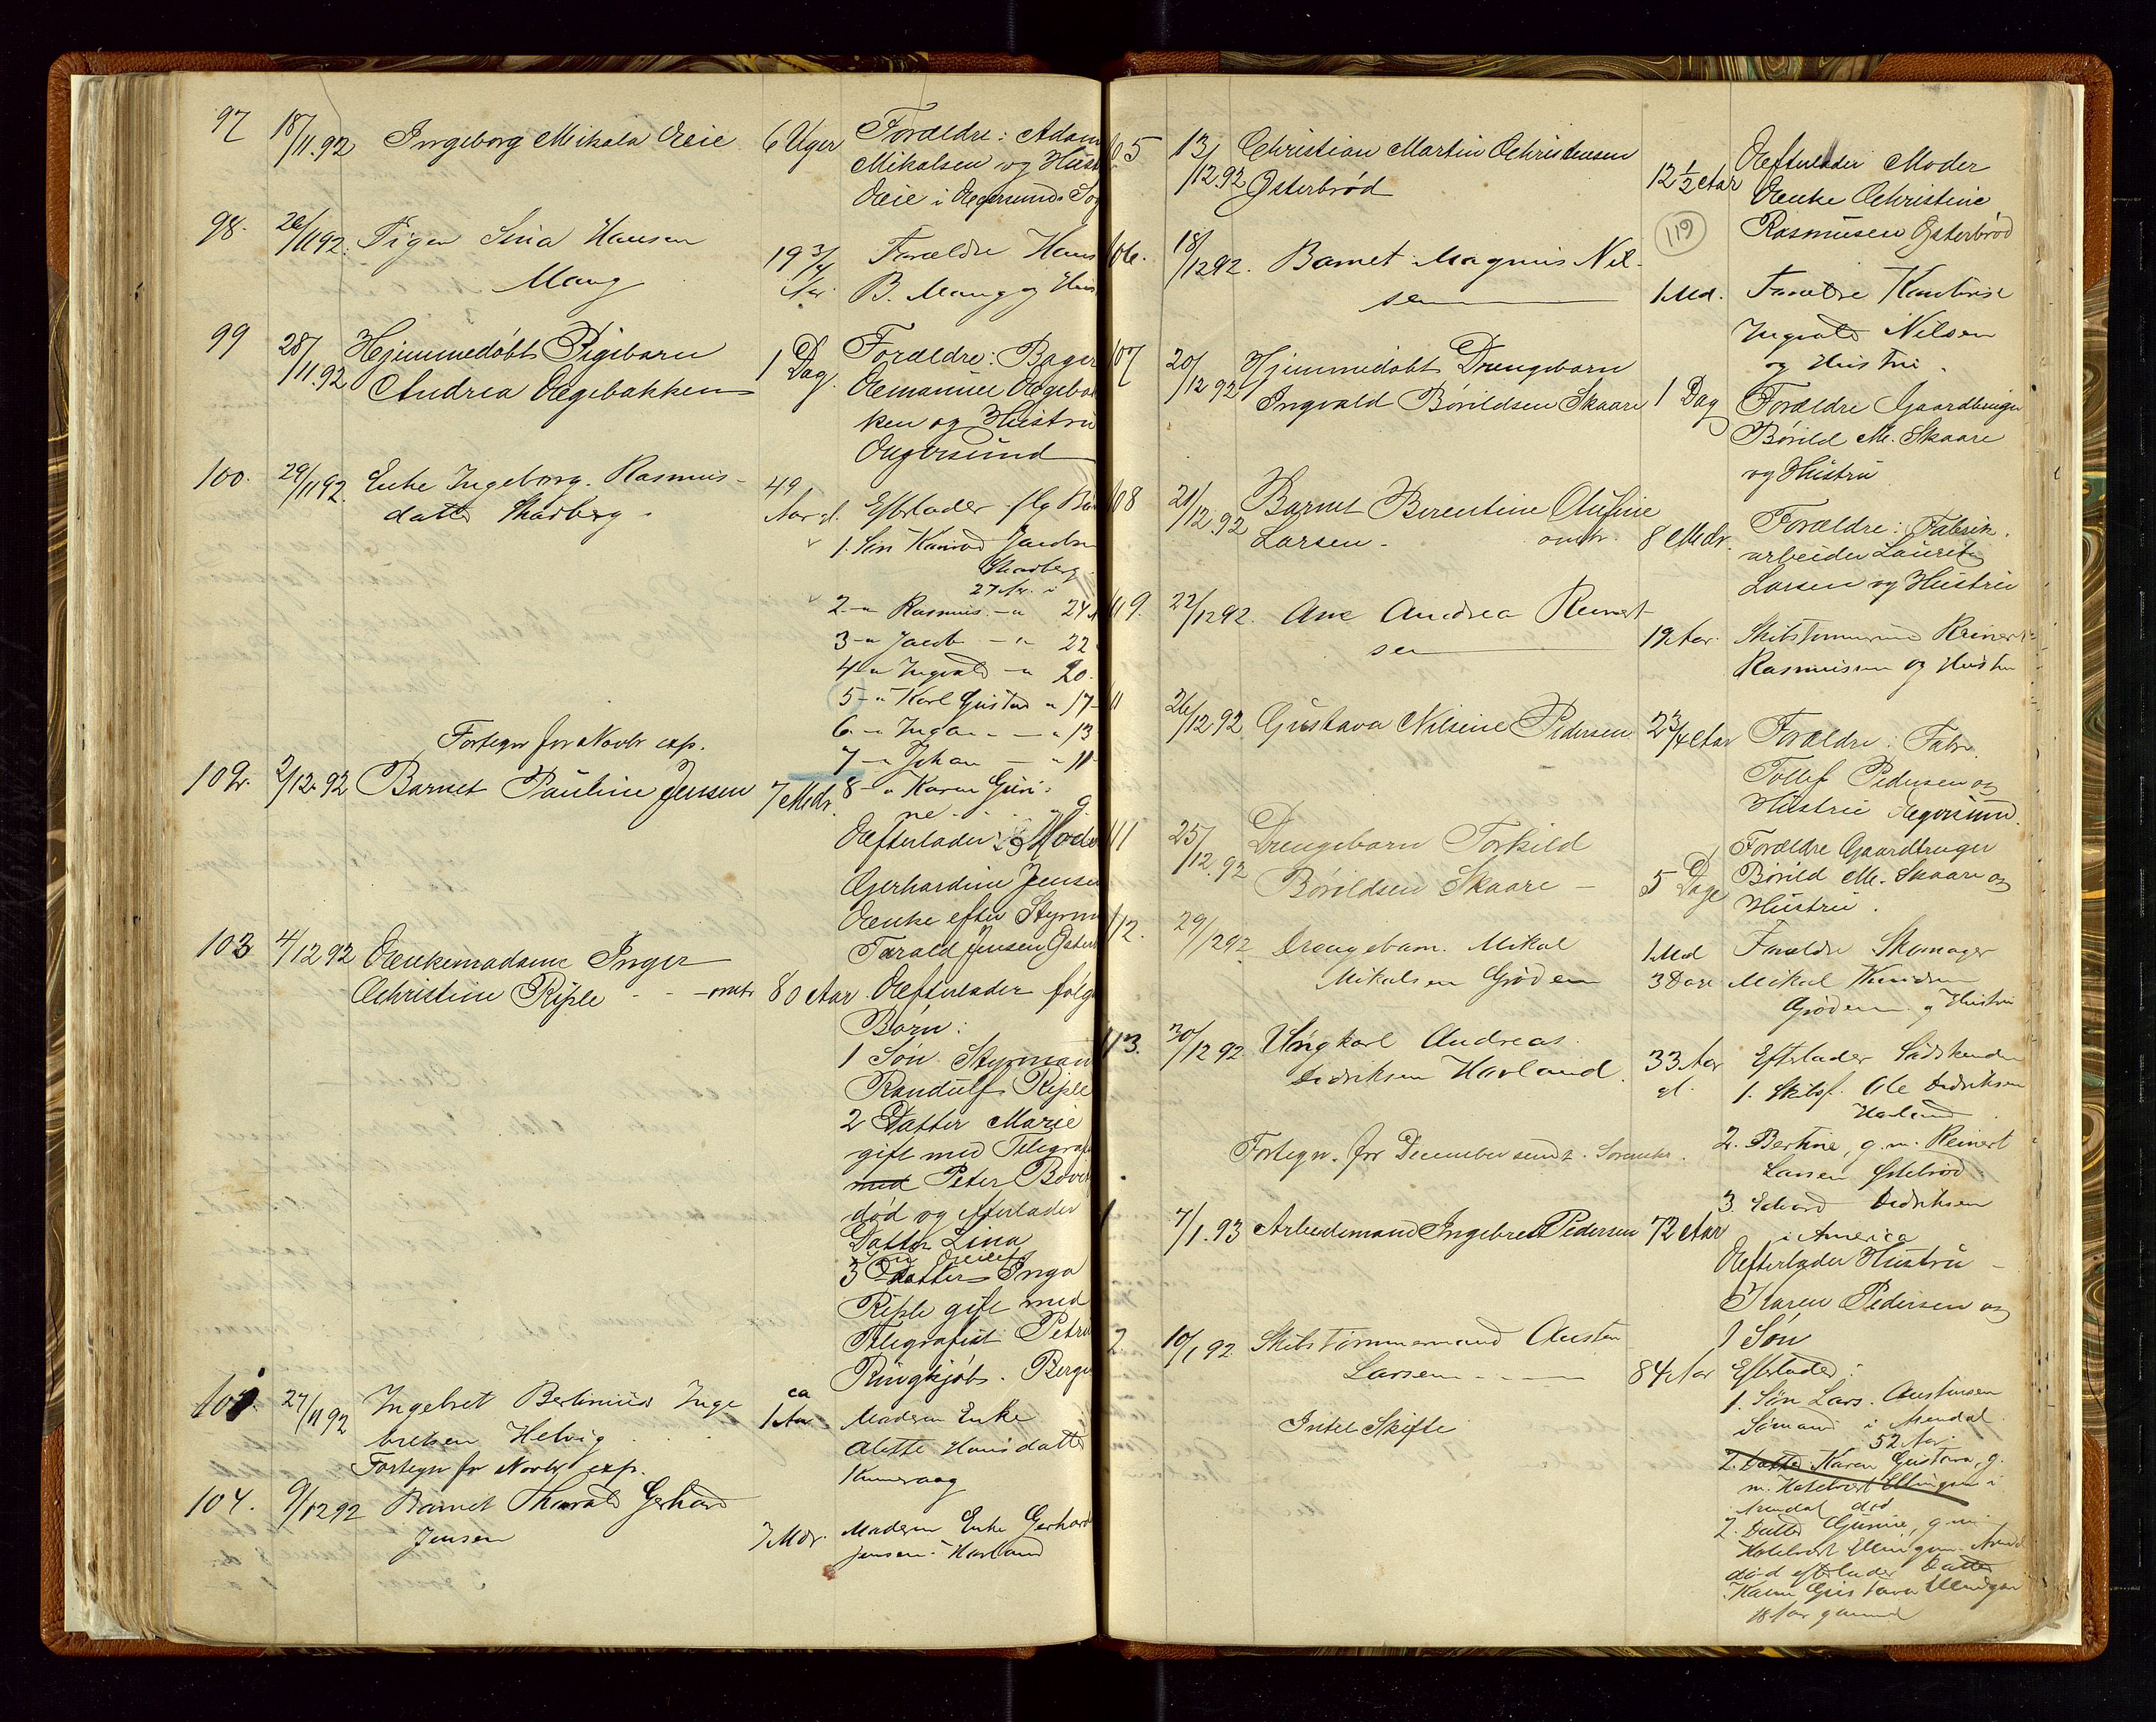 97 18/11.92 Ingeborg Mikala Eeie 6 Uger Forældre: Adam
Mikalsen og Hust
Eeie i Egersunds Sog
98. 26/11 92. Pigen Sina Hansen
Mang 19 3/4 Aar Forældre Hans
B. Mang og Hus
99 28/11.92 Hjemmedøbt Pigebarn
Andrea Ægebakken 1 Dag. Forældre: Bager
Emanuel Ægebak
ken og Hustru
Egersund
100. 29/11 92. Enke Ingeborg Rasmus-
datter Skadberg 49
Aar gl. Efterlader flg Bø
1. Søn Konrad Jacobs
Skadberg
27 Ar. i
2 -"- Rasmus -"- 24
3 -"- Jacob -"- 22
4 -"- Ingvald -"- 20.
5 -"- Karl Gustav " 17
6 -"- -"- 13
7 -"- Johan -"- 11
8 -"- Karen Guri-
ne -"- 9
Fortegn for Novbr exp.
102. 2/12.92 Barnet Pauline Jensen 7 Mdr.
Efterlader Moder
Gerhardine Jensen
Enke efter Styrm
Tarald Jensen Østerb
103 4/12 92 Enkemadame Inger
Christine Riple - - omtr 80 Aar. Efterlader følg
Børn:
1 Søn Styrmand
Randulf Riple
2 Datter Marie
gift med Telegraf
med Peter
død og efterlader
Datter Lina
3 Datter Inga
Riple gift med
Telegrafist Petr
Ringkjøb. Berge
10 27/11 92 Ingebret Bertinius Inge
bretsen Helvig ca
1 Aar Moderen Enke
Alette Hansdatter
Fortegn for Novbr exp.
104. 9/12 92 Barnet Tharald Gerhard
Jensen 7 Mdr. Moderen Enke Gerhard
Jensen Havland
105 13/12.92 Christian Martin Christensen
Østerbrød 12 1/2 Aar Efterlader Moder
Enke Christine
Rasmusen Østerbrød
119
106. 18/12 92. Barnet Magnus Niel-
sen 1 Md. Forældre
Ingvald Nilsen
og Hustru.
107 20/12 92 Hjemmedøbt Drengebarn
Ingvald Børildsen Skaare 1 Dag Forældre Gaardbruger
Børild M. Skaare
og Hustru
108 21/12.92 Barnet Berentine Olufine
Larsen - omtr. 8 Mdr. Forældre: Fabrik.
arbeider Laurits
Larsen og Hustru
109. 22/12 92. Ane Andrea Reinert
sen 19 Aar. Skibstømmermand Reinert
Rasmussen og Hustru
11 26/12.92 Gustava Nilsine Pedersen 2 3/4 Aar Forældre: Fabr.
Tollef Pedersen og
Hustru Egersund.
111 25/12.92 Drengebarn Torkild
Børildsen Skaare - 5 Dage Forældre Gaardbruger
Børild M. Skaare og
Hustru.
112. 29/12 92 Drengebarn Mikal
Mikalsen Grøden 1 Md
3 Dage Forældre Skomager
Mikal Knudsen
Grøden og Hustru
113. 30/12 92 Ungkarl Andreas
Didriksen Havland 33 Aar
gl. Efterlader Sødskende
1. Skibsf. Ole Didriksen
Havland
2. Bertine, g. m. Reinert
Larsen Østebrød
3. Edvard Didriksen
i America
Fortegn. for December sendt Sorenskr.
1 7/1.93 Arbeidsmand Ingebret Pedersen 72 Aar
Efterlader Hustru
Karen Pedersen og
1 Søn
2. 10/1 92 Skibstømmermand Austen
Larsen 84 Aar Efterlader:
1. Søn Lars Austensen
Sømand i Arendal
52 Aar.
Intet Skifte
2. Datter Karen Gustava, g.
m. Hotelvert Ellingsen i
Arendal død
2. Datter Gunie, g. m.
Hotelvert Ellingsen Arend
død efterlader Datter
Karen Gustava Ellingsen
18 Aar gammel